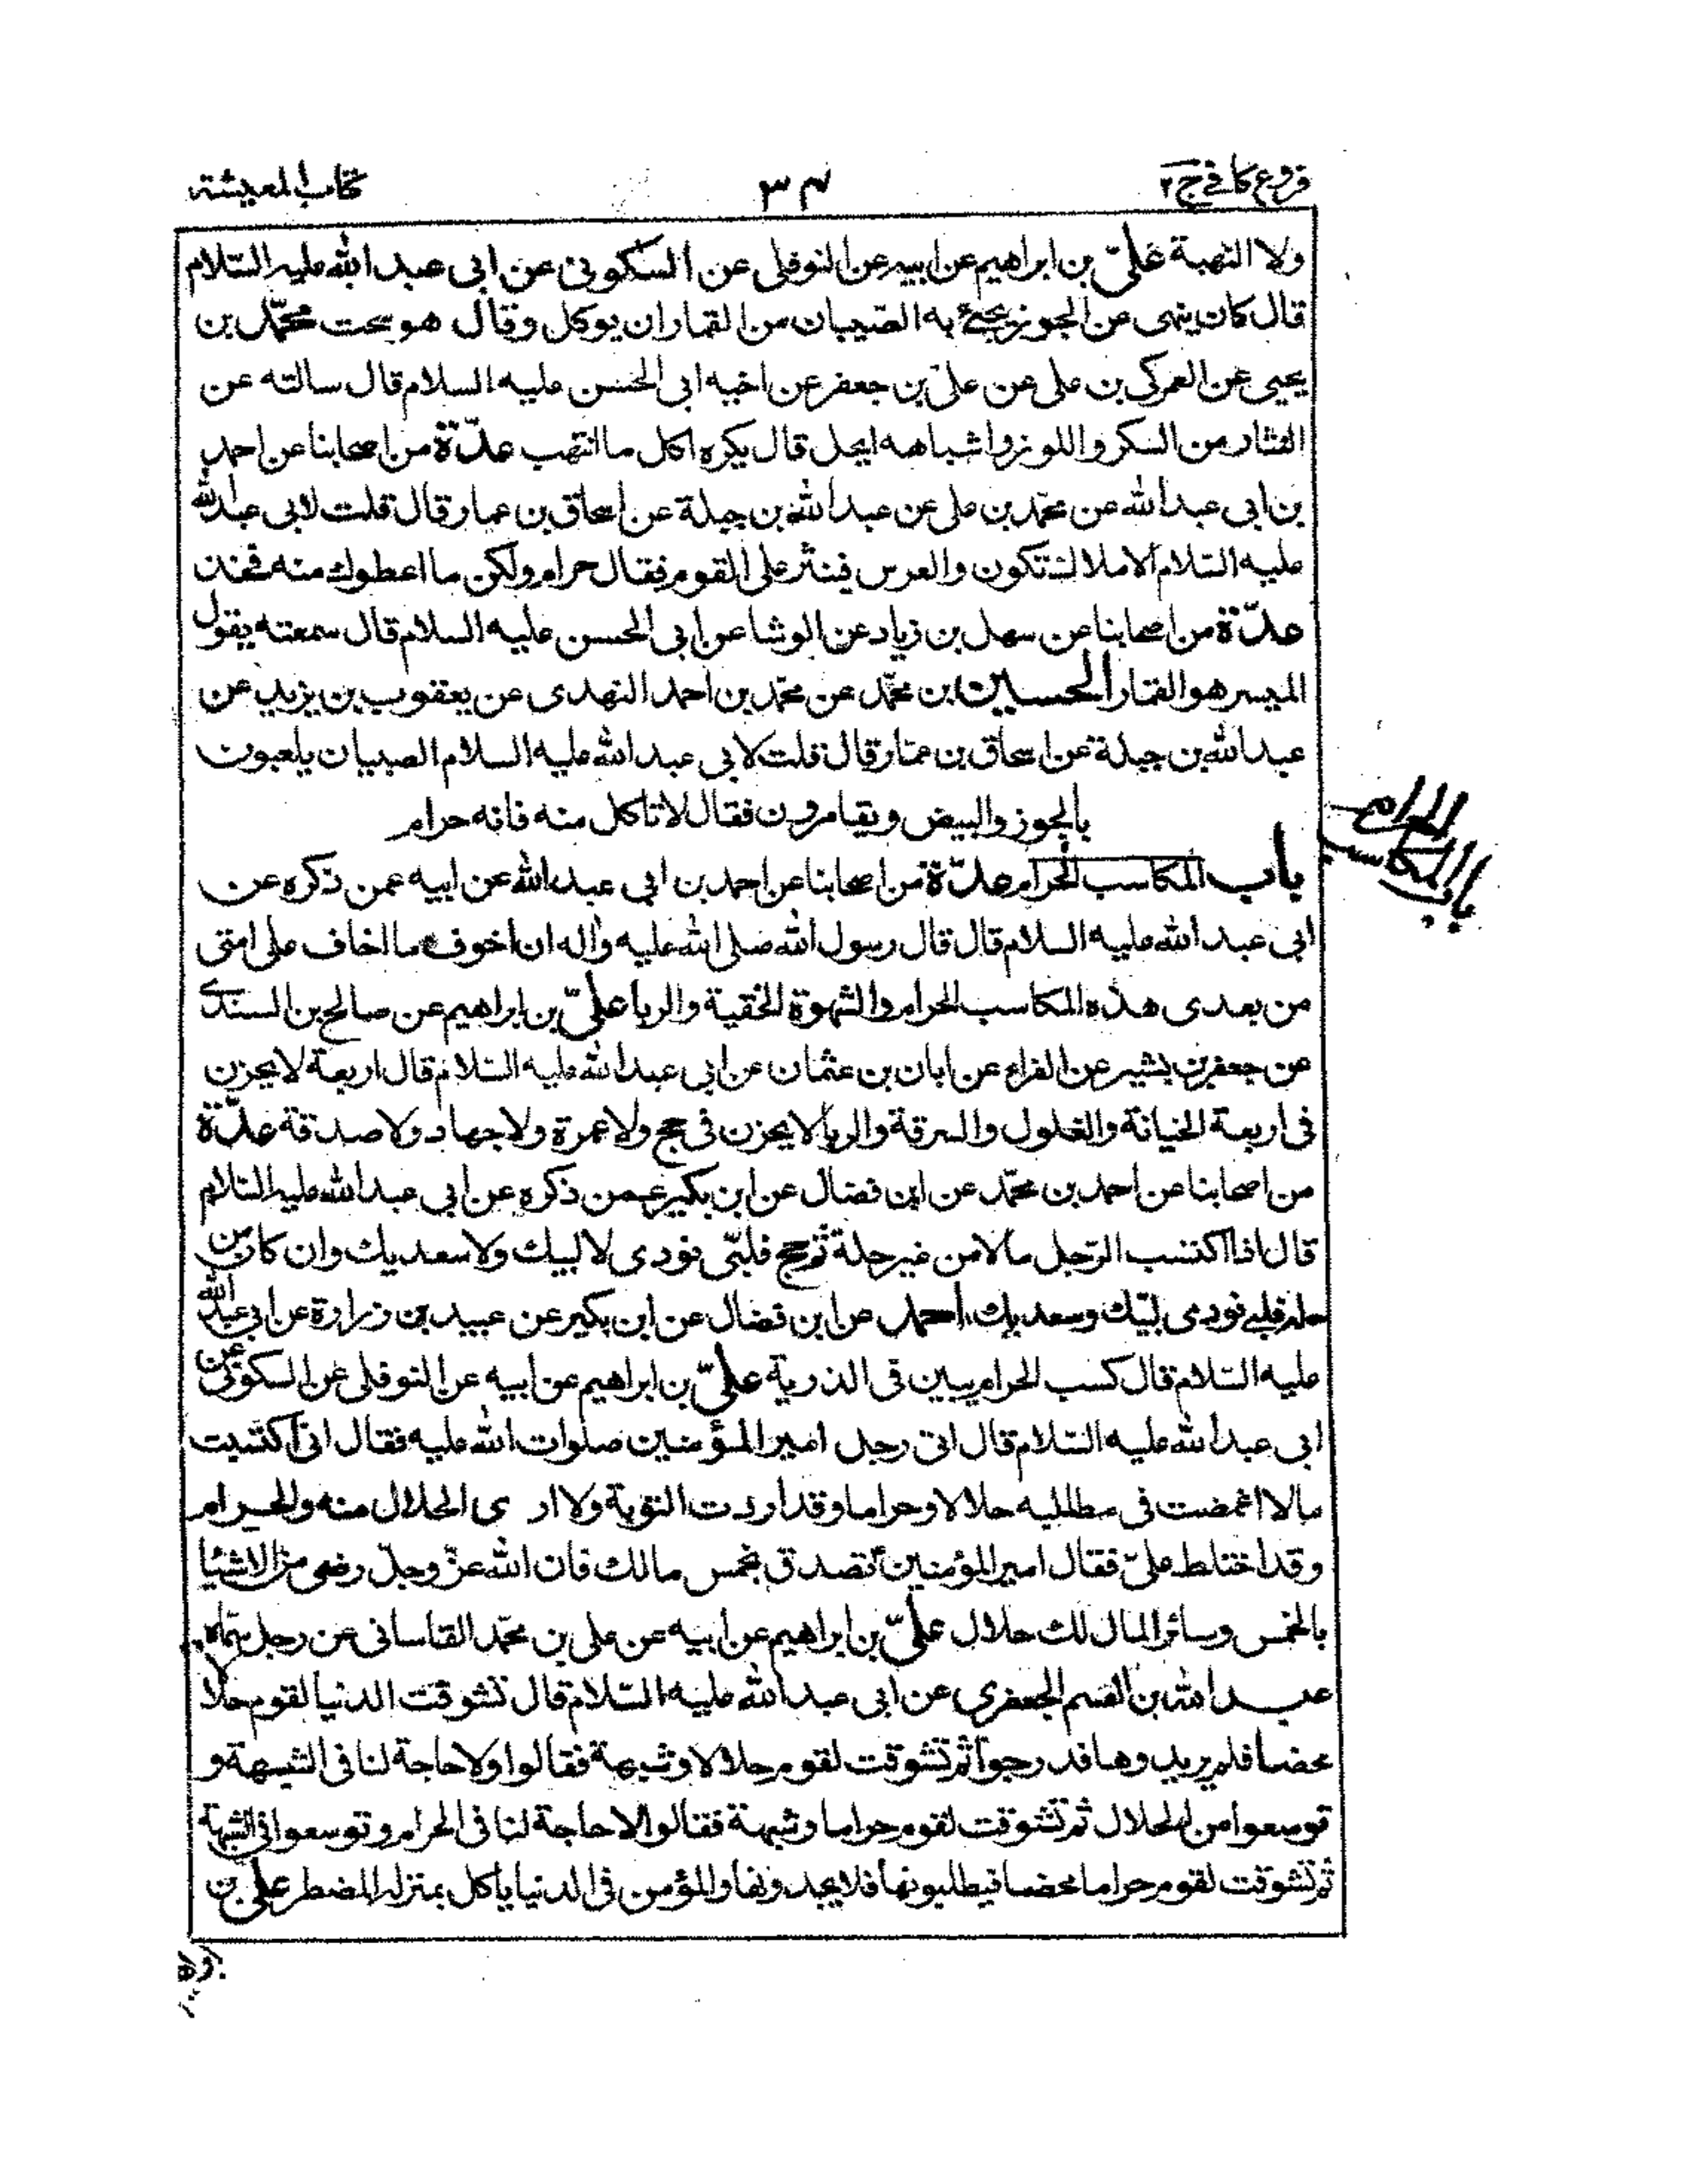 فروع كافي ج ٢
٣٤
كتاب المعيشة
ولا النهبة علىّ بن ابراهيم عن ابيه عن النوفلى عن السكونى عن ابى عبد الله عليه السّلام
قال كان ينهى عن الجوز يجئ به الصّبيان من القمار ان يوكل وقال هو سحت محمّد بن
يحيى عن العمركى بن على عن علىّ بن جعفر عن اخيه ابى الحسن عليه السلام قال سالته عن
النثار من السكر واللوز واشباهه ايحل قال يكره اكل ما انتهب عدّة من اصحابنا عن احمد
بن ابى عبد الله عن محمّد بن على عن عبد الله بن جبلة عن اسحاق بن عمار قال قلت لابى عبد الله
عليه السّلام الاملاك تكون والعرس فينثر على القوم فقال حرام ولكن ما اعطوك منه فخذ
عدّة من اصحابنا عن سهل بن زياد عن الوشا عن ابى الحسن عليه السلام قال سمعته يقول
الميسر هو القمار الحسين بن محمّد عن محمّد بن احمد النهدى عن يعقوب بن يزيد عن
عبد الله بن جبلة عن اسحاق بن عمّار قال قلت لابى عبد الله عليه السلام الصبيان يلعبون
بالجوز والبيض ويقامرون فقال لا تاكل منه فانه حرام
باب المكاسب الحرام عدّة من اصحابنا عن احمد بن ابى عبد الله عن ابيه عمن ذكره عن
باب المكاسب الحرام
ابى عبد الله عليه السلام قال قال رسول الله صلى الله عليه واله ان اخوف ما اخاف على امتى
من بعدى هذه المكاسب الحرام والشهوة الخفية والربا علىّ بن ابراهيم عن صالح بن السندى
عن جعفر بن بشير عن الفراء عن ابان بن عثمان عن ابى عبد الله عليه السّلام قال اربعة لا يجزن
فى اربعة الخيانة والغلول والسرقة والربا لا يجزن فى حج ولا عمرة ولا جهاد ولا صدقة عدّة
من اصحابنا عن احمد بن محمّد عن ابن فضال عن ابن بكير عمن ذكره عن ابى عبد الله عليه السّلام
قال اذا اكتسب الرّجل مالا من غير حلة ثم حج فلبّى نودى لا لبيك ولا سعديك وان كان من
حله فلبى نودى لبّيك وسعديك احمد عن ابن فضال عن ابن بكير عن عبيد بن زرارة عن ابى عبد الله
عليه السّلام قال كسب الحرام يبين فى الذرية علىّ بن ابراهيم عن ابيه عن النوفلى عن السكونى عن
ابى عبد الله عليه السّلام قال اتى رجل امير المؤمنين صلوات الله عليه فقال انى اكتسبت
مالا اغمضت فى مطالبه حلالا وحراما وقد اردت التوبة ولا ارى الحلال منه والحرام
وقد اختلط علىّ فقال امير المؤمنين ع تصدق بخمس مالك فان الله عزّ وجلّ رضى من الاشيا
بالخمس وسائر المال لك حلال علىّ بن ابراهيم عن ابيه عن على بن محمّد القاسانى عن رجل سمّاه
عبد الله بن القسم الجعفرى عن ابى عبد الله عليه السّلام قال تشوقت الدنيا لقوم حلالا
محضا فلم يريدوها فدرجوا ثم تشوقت لقوم حلالا وشبهة فقالوا ولا حاجة لنا فى الشبهة و
توسعوا من الحلال ثم تشوقت لقوم حراما وشبهة فقالوا لا حاجة لنا فى الحرام وتوسعوا فى الشبهة
ثم تشوقت لقوم حراما محضا فيطلبونها فلا يجدونها والمؤمن فى الدنيا ياكل بمنزله المضطر على بن